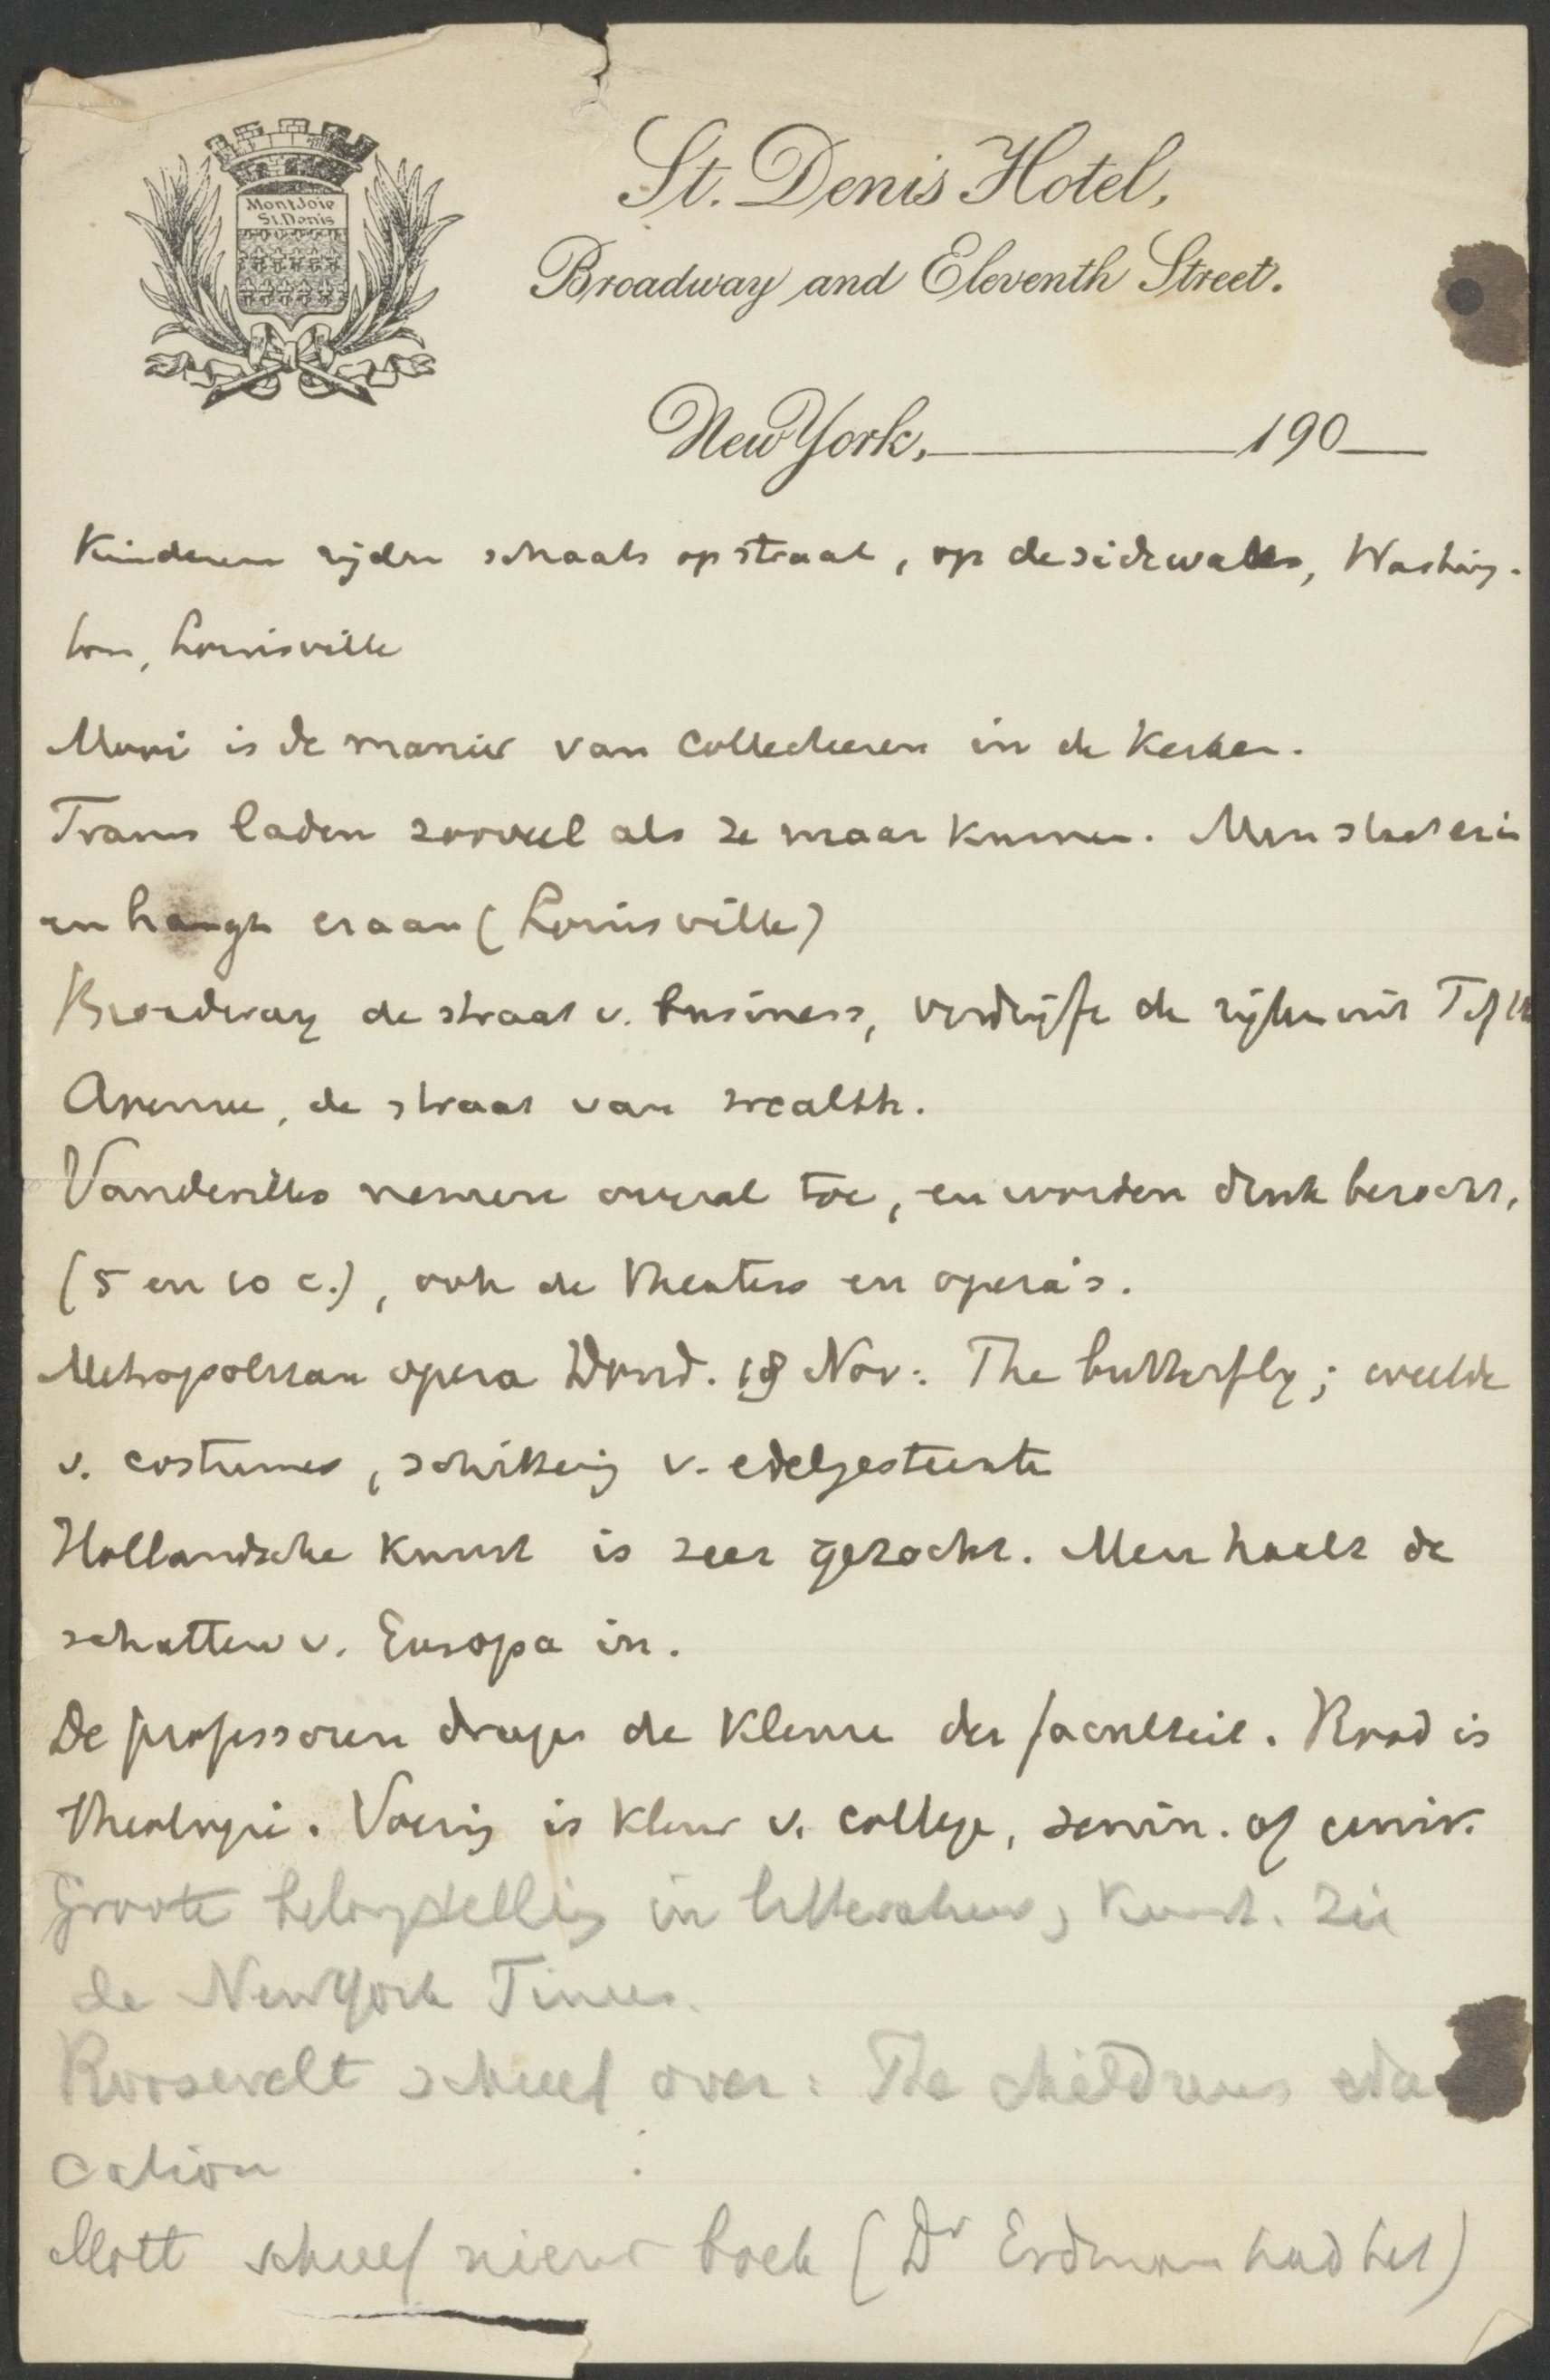 MontJoie
St. Denis
St. Denis Hotel,
Broadway and Eleventh Street.
New York, 190
Kinderen rijden schaats op straat, op de sidewalks, Washing-
ton, Louisville
Mooi is de manier van collecteeren in de kerken.
Trams laden zooveel als ze maar kunnen. Men staat erin
en hangt eraan (Louisville)
Broadway de straat v. business, verdrijft de rijken uit Fifth
Avenue, de straat van wealth.
Vaudevilles nemen overal toe, en worden druk bezocht,
(5 en 10 c.), ook de theaters en opera's.
Metropolitan opera Dond. 19 Nov: The butterfly; weelde
v. costumes, schittering v. edelgesteente
Hollandsche kunst is zeer gezocht. Men haalt de
schatten v. Europa in.
De professoren dragen de kleur der faculteit. Rood is
theologie. Voering is kleur v. college, semin. of univ.
Groote belangstelling in litteratuur, kunst. Zie
de New York Times.
Roosevelt schreef over: The childrens edu
cation
Mott schreef nieuw boek (Dr Erdman had het)